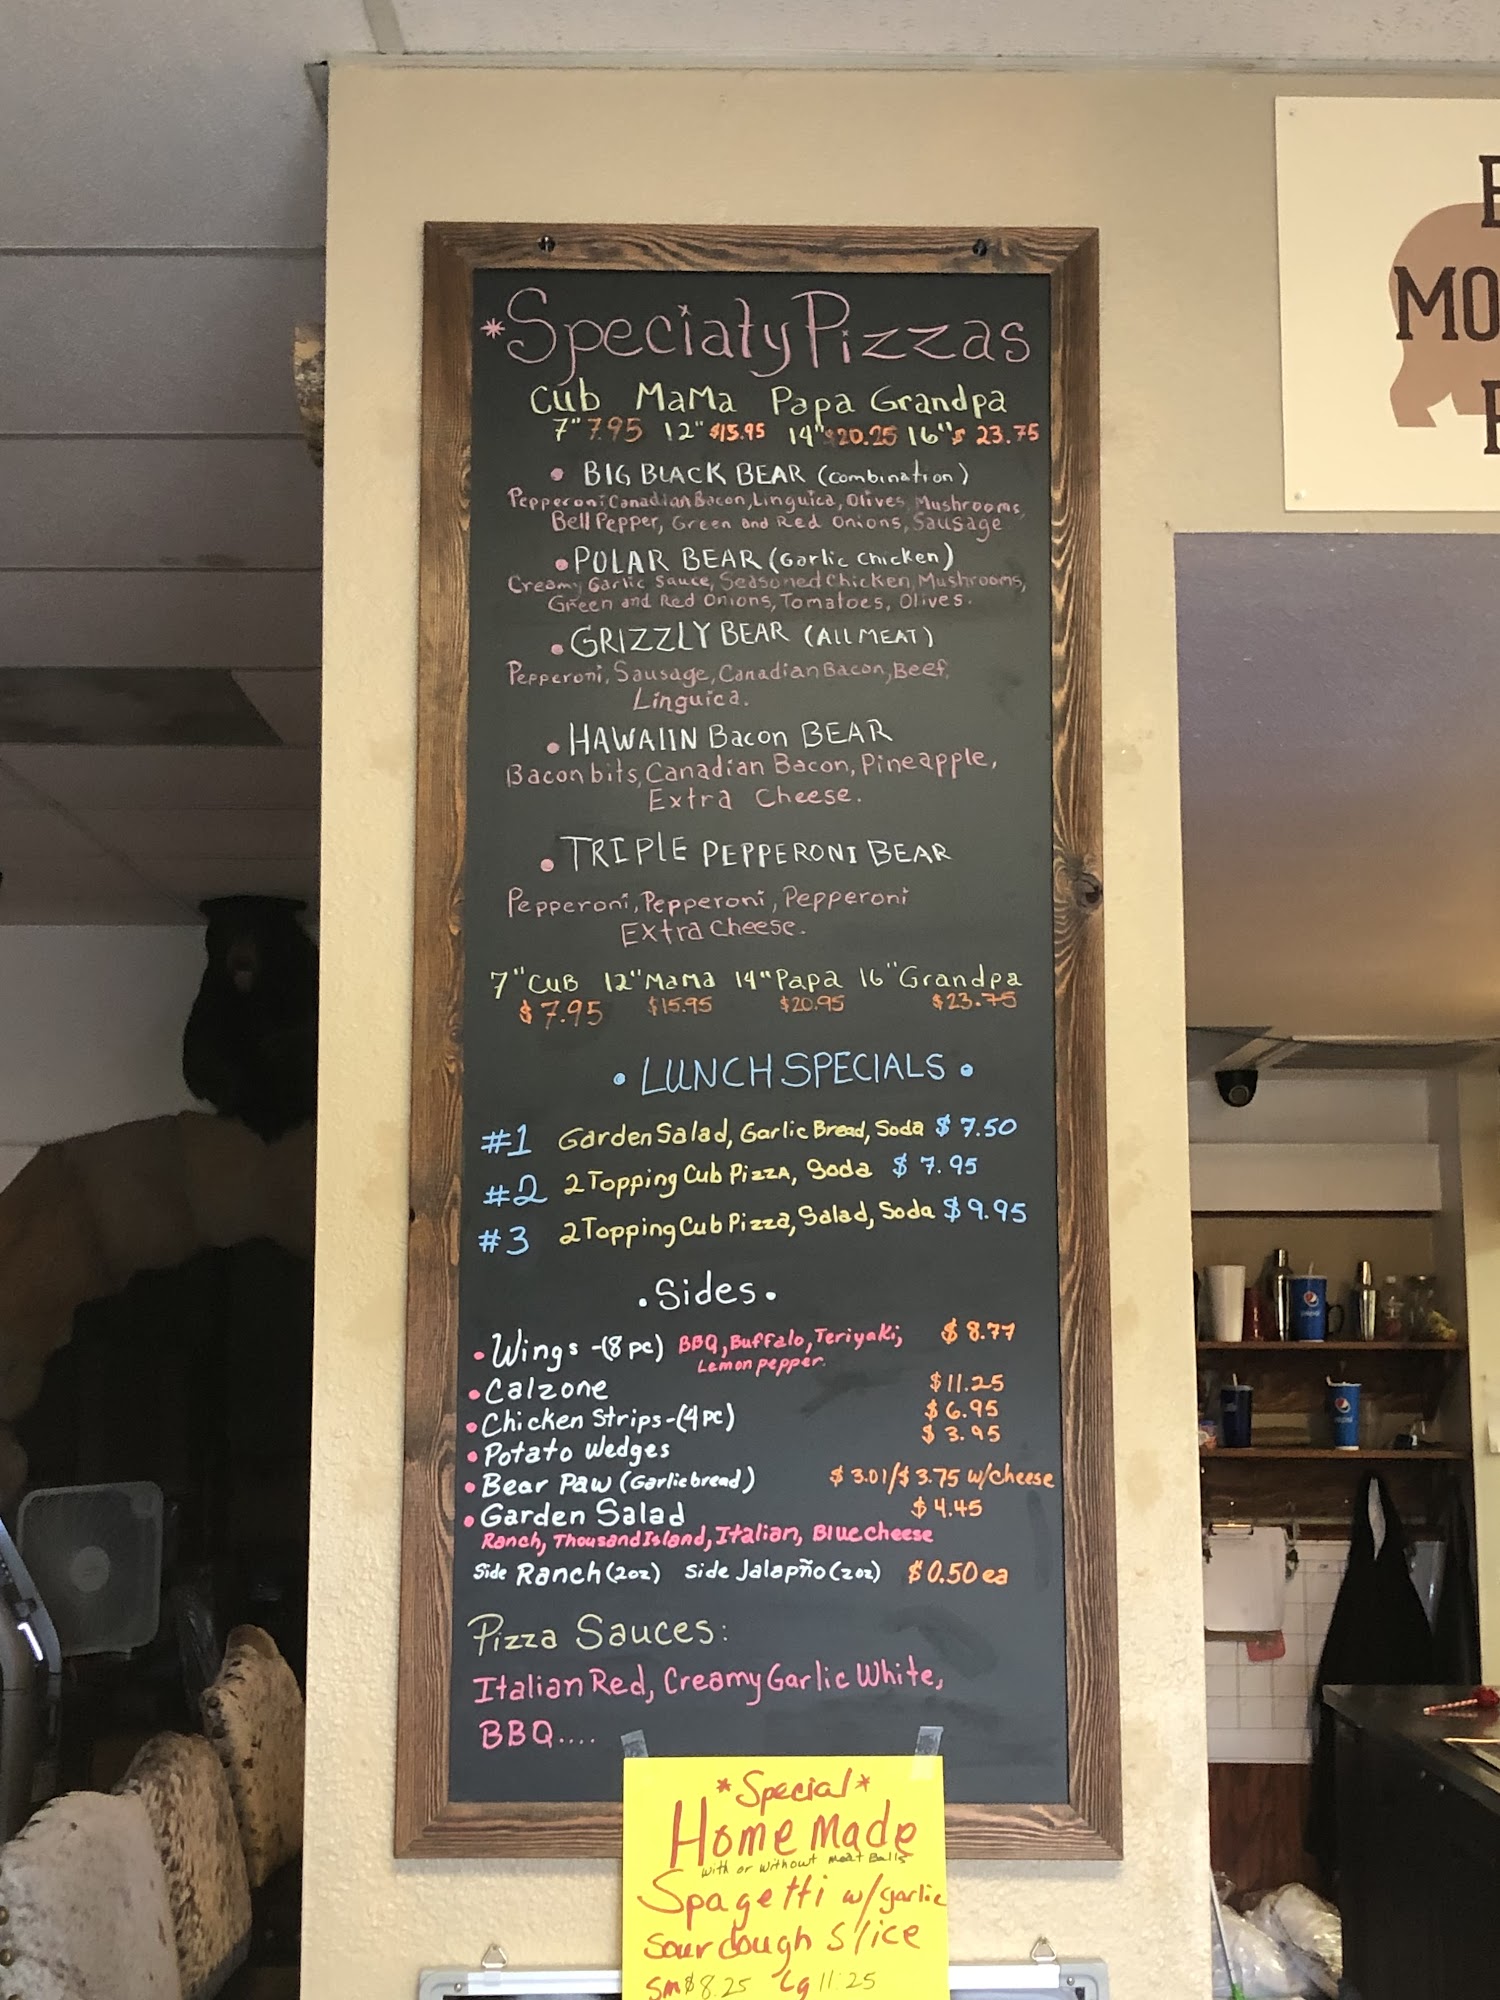 *Specialty Pizzas
Cub MaMa Papa Grandpa
7" 7.95 12" $15.95 14" $20.25 16" $ 23.75
• BIG BLACK BEAR (combination)
Pepperoni, Canadian Bacon, Linguica, Olives, Mushrooms,
Bell Pepper, Green and Red Onions, Sausage
• POLAR BEAR (Garlic Chicken)
Creamy Garlic Sauce, Seasoned Chicken, Mushrooms,
Green and Red Onions, Tomatoes, Olives.
• GRIZZLY BEAR (All MEAT)
Pepperoni, Sausage, Canadian Bacon, Beef,
Linguica.
• HAWAIIN Bacon BEAR
Bacon bits, Canadian Bacon, Pineapple,
Extra Cheese.
• TRIPLE PEPPERONI BEAR
Pepperoni, Pepperoni, Pepperoni
Extra Cheese.
7" CUB 12" Mama 14" Papa 16" Grandpa
$7.95 $15.95 $20.95 $23.75
• LUNCH SPECIALS •
#1 Garden Salad, Garlic Bread, Soda $ 7.50
#2 2 Topping Cub PizzA, Soda $ 7.95
#3 2 Topping Cub Pizza, Salad, Soda $ 9.95
• Sides •
• Wings -(8 pc) BBQ, Buffalo, Teriyaki, $ 8.77
Lemon pepper.
• Calzone $11.25
• Chicken Strips-(4 pc) $ 6.95
• Potato Wedges $ 3.95
• Bear Paw (Garlic bread) $ 3.01/$ 3.75 w/cheese
• Garden Salad $ 4.45
Ranch, Thousand Island, Italian, Blue cheese
Side Ranch (2oz) Side Jalapño (2oz) $0.50 ea
Pizza Sauces:
Italian Red, Creamy Garlic White,
BBQ....
*Special*
Home Made
with or without Meat Balls
Spagetti w/garlic
Sourdough Slice
Sm $8.25 Lg 11.25
MO
pepsi
pepsi